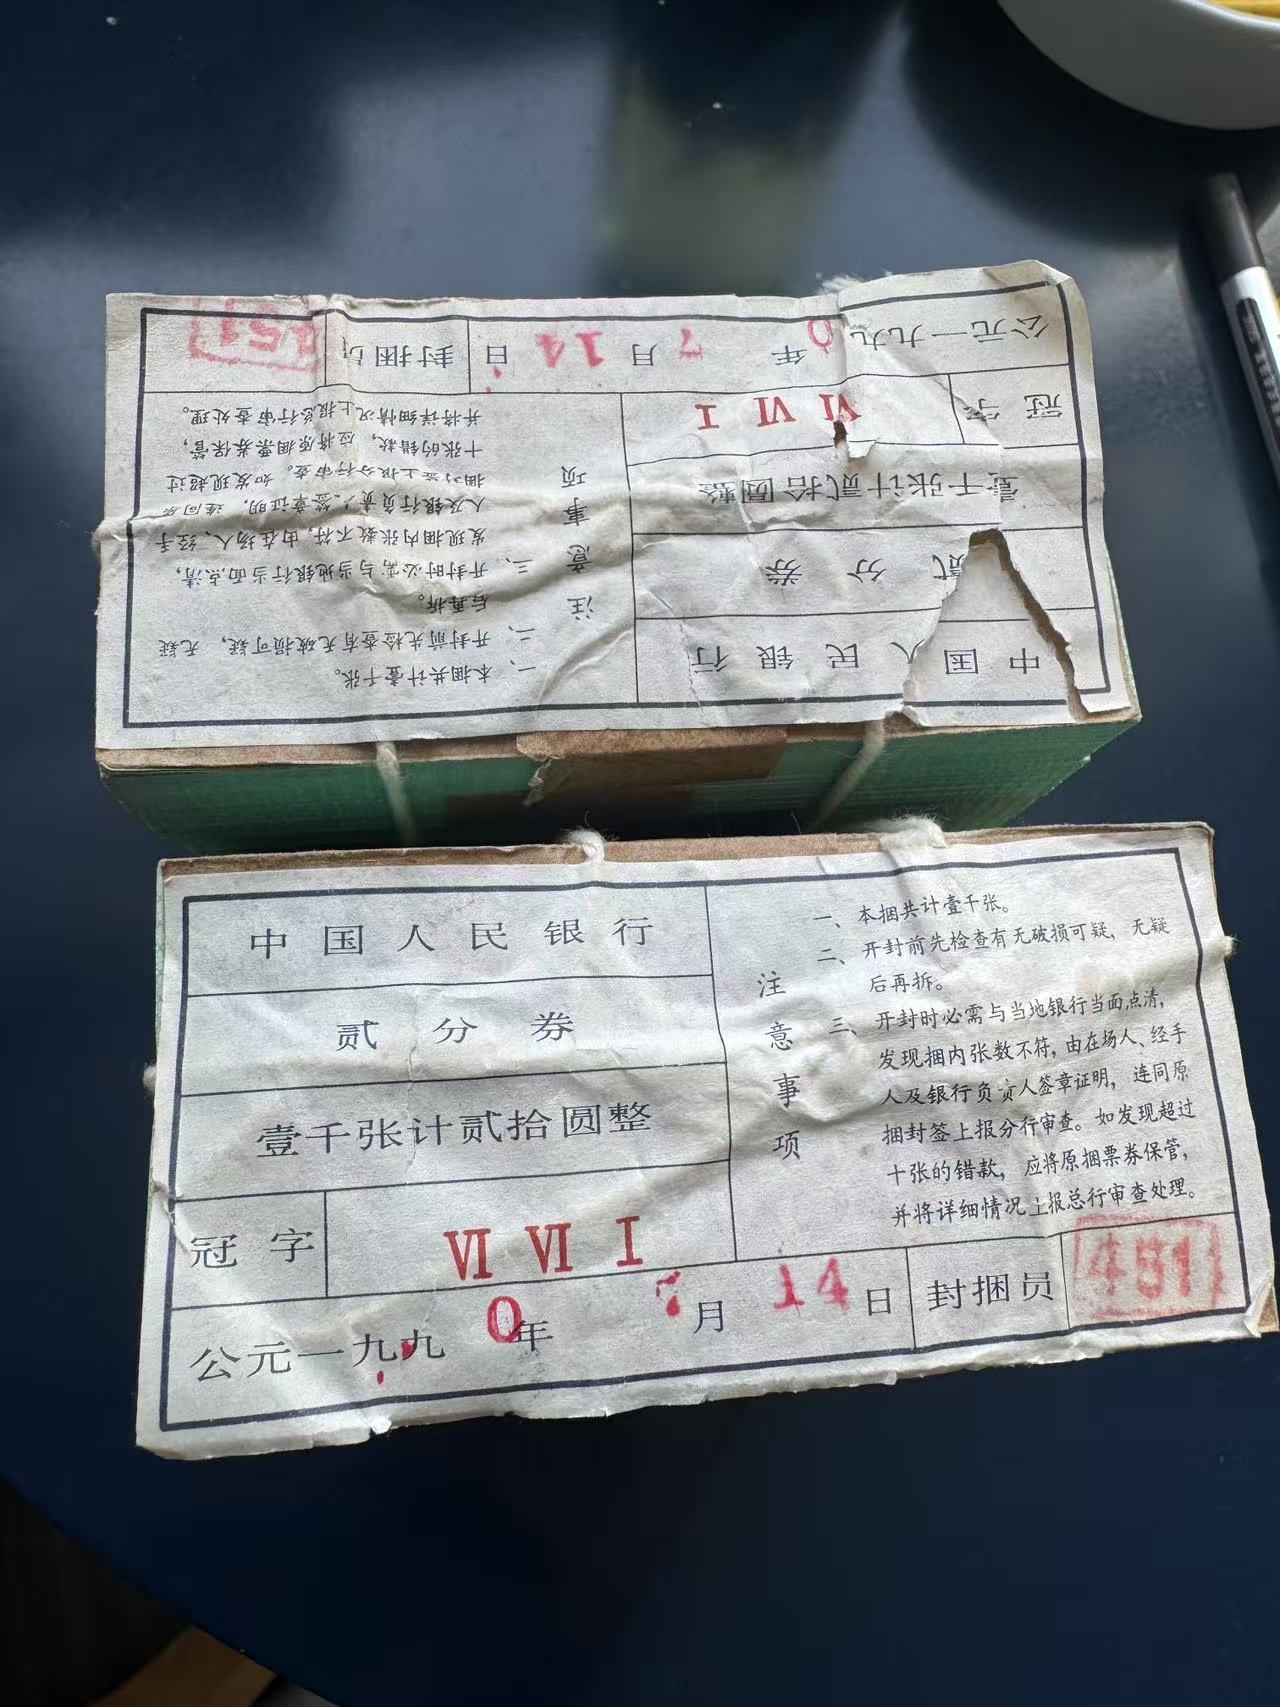 公元一九九0年 7月 14日 封捆 451
冠字 Ⅵ Ⅵ Ⅰ
壹千张计贰拾圆整
贰分券
中国人民银行
注意事项
一、本捆共计壹千张。
二、开封前先检查有无破损可疑，无疑
后再拆。
三、开封时必需与当地银行当面点清，
发现捆内张数不符，由在场人、经手
人及银行负责人签章证明，连同原
捆封签上报分行审查。如发现超过
十张的错款，应将原捆票券保管，
并将详细情况上报总行审查处理。
中国人民银行
贰分券
壹千张计贰拾圆整
冠字 Ⅵ Ⅵ Ⅰ
公元一九九0年 7月 14日 封捆员 451
注意事项
一、本捆共计壹千张。
二、开封前先检查有无破损可疑，无疑
后再拆。
三、开封时必需与当地银行当面点清，
发现捆内张数不符，由在场人、经手
人及银行负责人签章证明，连同原
捆封签上报分行审查。如发现超过
十张的错款，应将原捆票券保管，
并将详细情况上报总行审查处理。